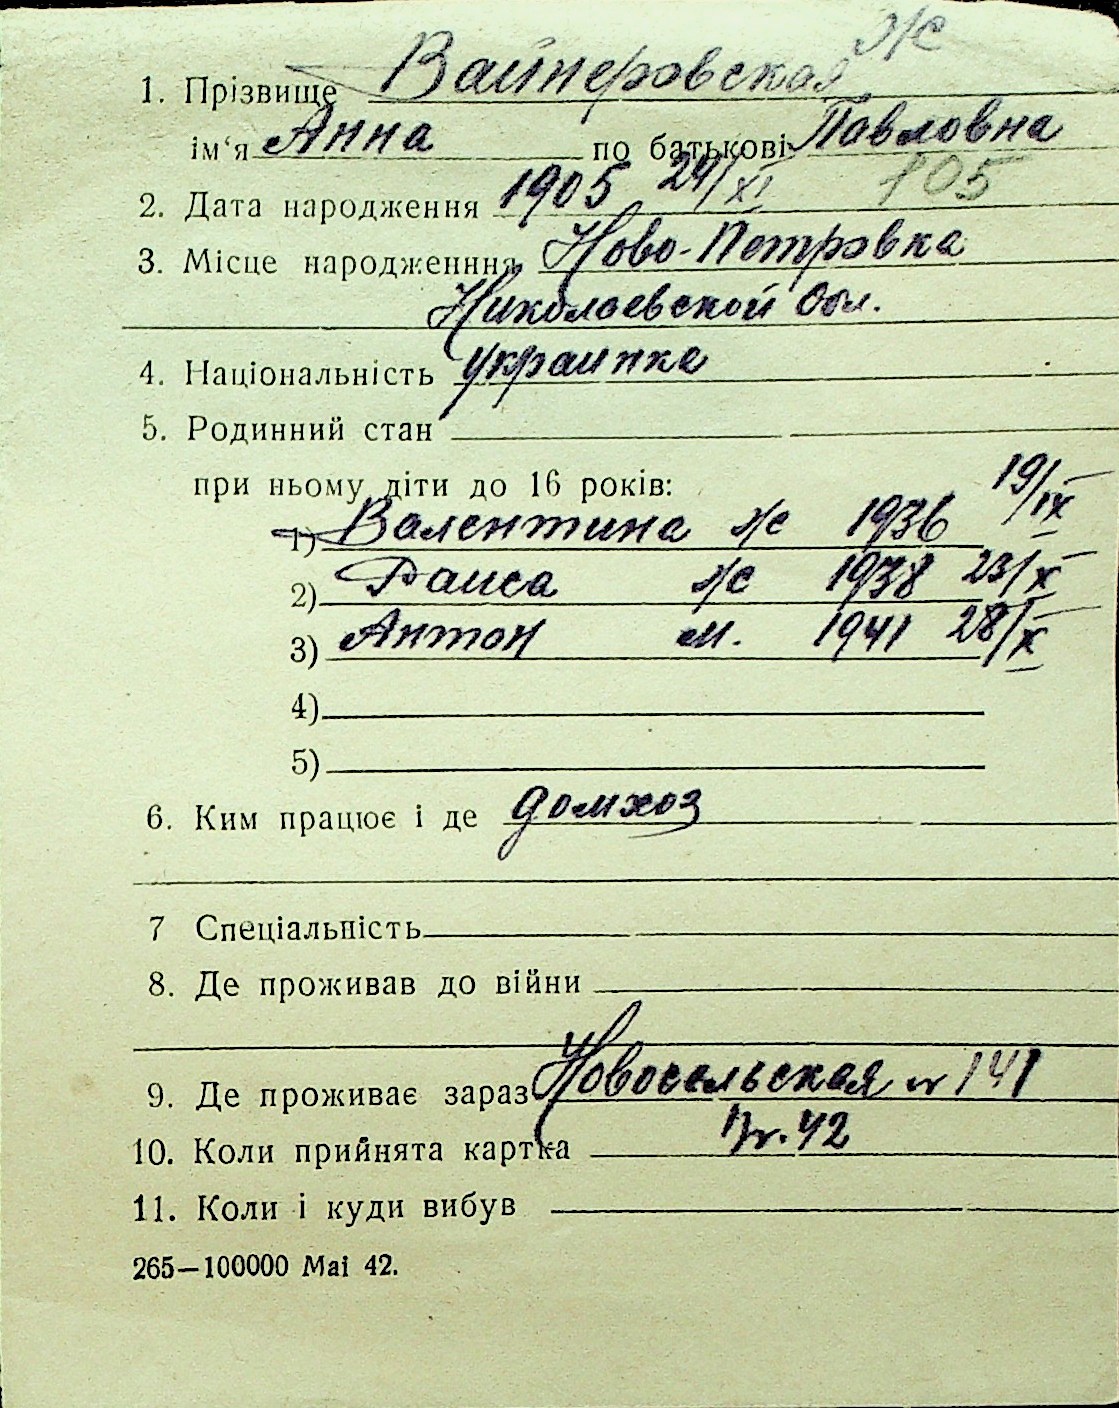 ж
1. Прізвище Вайнеровская
ім‘я Анна по батькові Павловна
2. Дата народження 1905 24/XI 105
3. Місце народженння Ново-Петровка
Николаевской обл.
4. Національність украинка
5. Родинний стан
при ньому діти до 16 років:
1) Валентина ж 1936 19/IX
2) Раиса ж 1938 23/X
3) Антон м. 1941 28/X
4)
5)
6. Ким працює і де домхоз
7 Спеціальність
8. Де проживав до війни
9. Де проживає зараз Новосельская 141
10. Коли прийнята картка 42
11. Коли і куди вибув
265—100000 Mai 42.